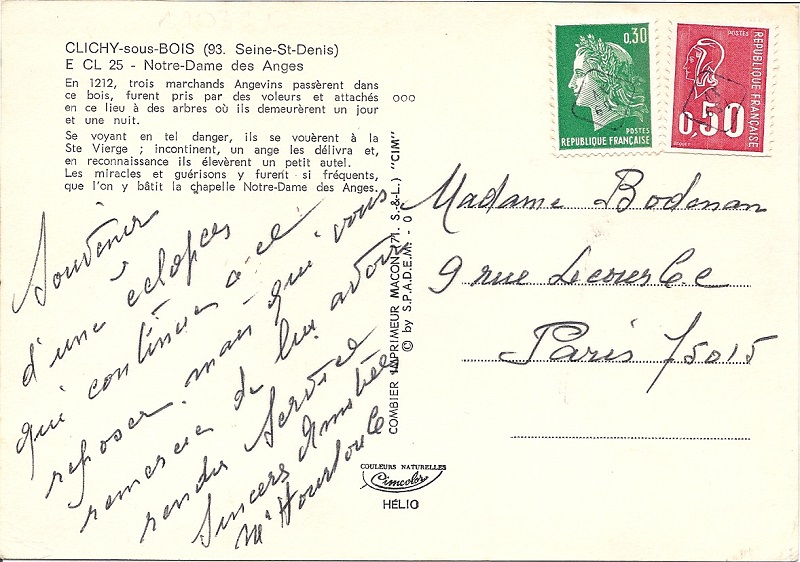 CLICHY-sous-BOIS (93. Seine-St-Denis)
E CL 25 - Notre-Dame des Anges
En 1212, trois marchands Angevins passèrent dans
ce bois, furent pris par des voleurs et attachés
en ce lieu à des arbres où ils demeurèrent un jour
et une nuit.
Se voyant en tel danger, ils se vouèrent à la
Ste Vierge ; incontinent, un ange les délivra et,
en reconnaissance ils élevèrent un petit autel.
Les miracles et guérisons y furent si fréquents,
que l'on y bâtit la chapelle Notre-Dame des Anges.
Souvenir
d'une éclopées
qui continues à ce
reposer mais qui vous
remercie de lui avoir
rendu Service
Sincers Amitiées
COMBIER IMPRIMEUR MACON (71. S.-&-L.) "CIM"
© by S.P.A.D.E.M. - 0
ooo
0,30
POSTES
RÉPUBLIQUE FRANÇAISE
POSTES
RÉPUBLIQUE FRANÇAISE
0,50
Madame Bodenan
9 rue Lecourbe
Paris 75015
COULEURS NATURELLES
Cimcolor
HÉLIO